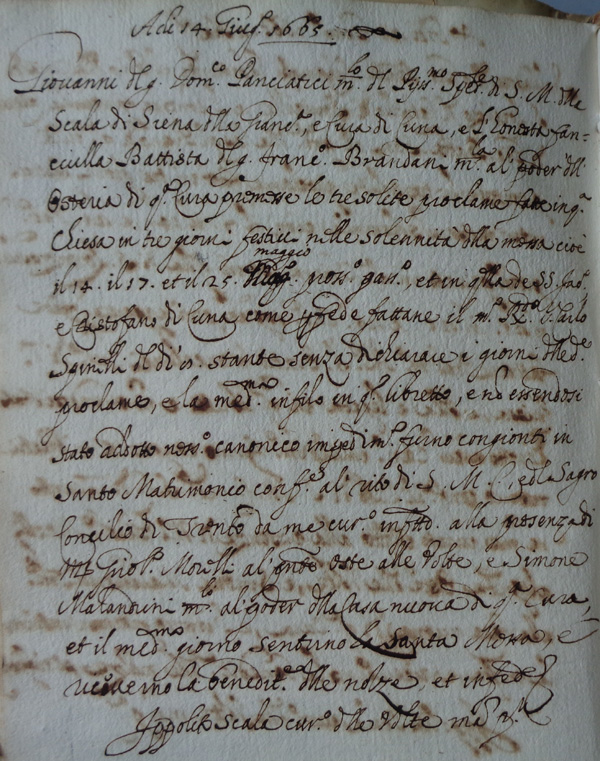 Adi 14 Giug.º 1665.
Giovanni dl q. Dom.co Panciatici m.lo dl
Scala di Siena dlla Granc.ª, e Cura di Cuna, e l'honesta fan=
ciulla Battista dl q. Franc.º Brandani m.la al poder dll'
Osteria di q.ª Cura premesse le tre solite proclame fatte in q.ª
Chiesa in tre giorni festivi nelle solennità dlla messa cioè
maggio
il 14. il 17. et il 25. pross.º pass.º, et in q.lla de SS. Jac.º
e Cristofano di Cuna come p fede fattane il m.to R.do
Spinelli dl dì stante senza dichiarare i giorni dlle d.e
proclame, e la med.ma infilo in q.º libretto, e nō essendosi
stato addotto ness.º canonico impedim.º furno congionti in
Santo Matrimonio conf.e al rito di S. M. C. e dl Sagro
Concilio di Trento da me cur.º infrtto. alla presenza di
Morelli al pnte Oste alle Volte, e Simone
Malandrini m.lo al poder dlla Casa nuova di q.ª Cura,
et il med.mo giorno sentirno la Santa Messa, e
riceverno la benedit.ne dlle nozze, et in fede
Ippolito Scala cur.º dlle Volte mā pp.ª